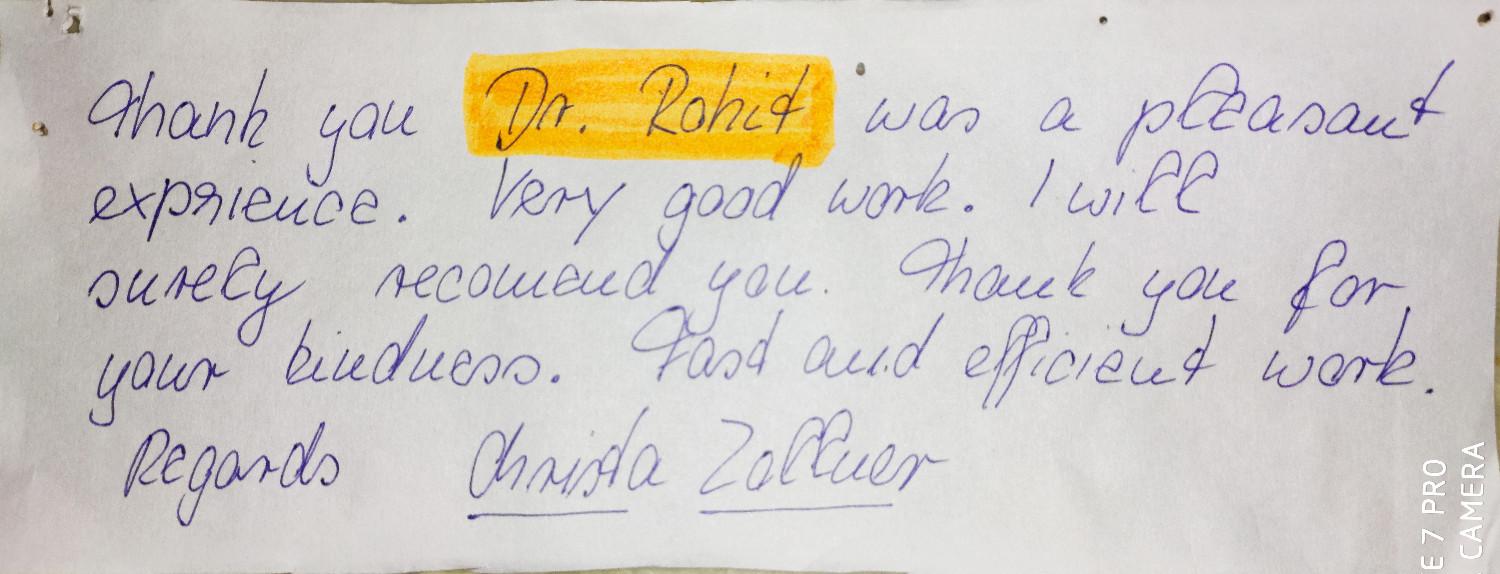 Thank you Dr. Rohit was a pleasant
exprience. Very good work. I will
surely recomend you. Thank you for
your kindness. Fast and efficient work.
Regards Christa Zollner
E 7 PRO
CAMERA